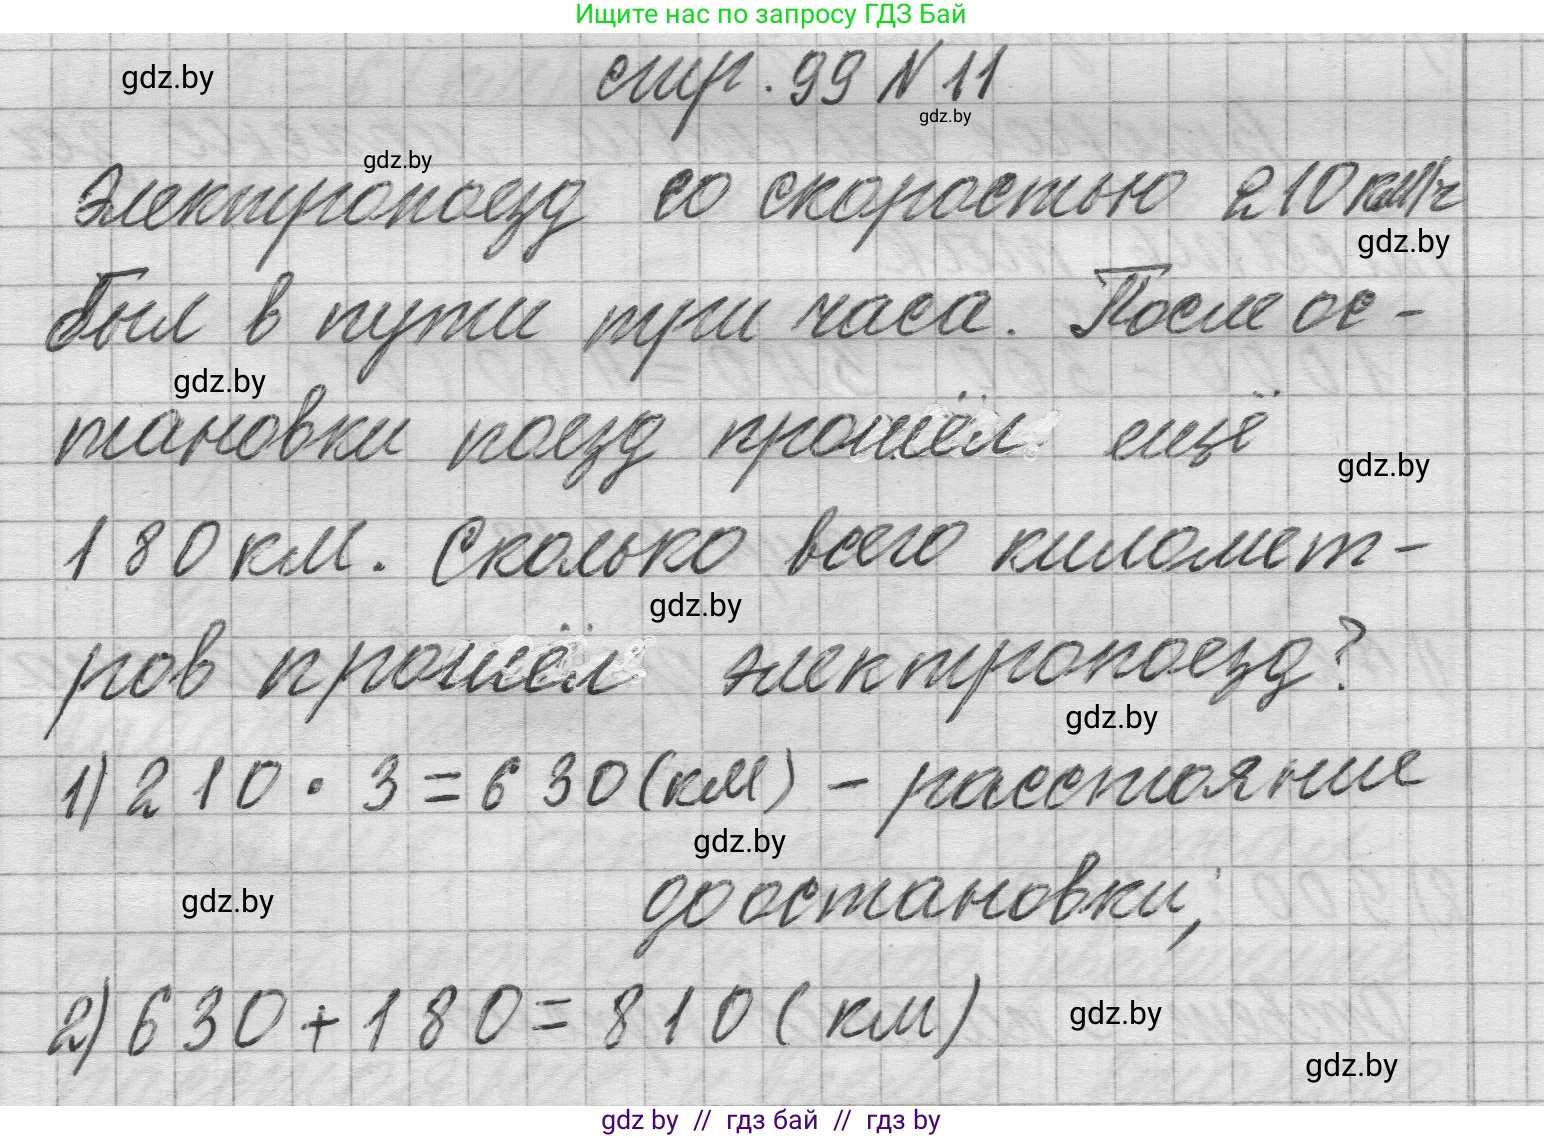 Ищите нас по запросу ГДЗ Бай
gdz.by
стр. 99 № 11
gdz.by
gdz.by
Электропоезд со скоростью 210 км/ч
gdz.by
был в пути три часа. После ос-
gdz.by
тановки поезд прошёл ещё
gdz.by
180 км. Сколько всего километ-
gdz.by
ров прошёл электропоезд?
gdz.by
1) 210 · 3 = 630 (км) – расстояние
gdz.by
gdz.by
до остановки;
2) 630 + 180 = 810 (км)
gdz.by
gdz.by
gdz by // гдз бай // гдз by